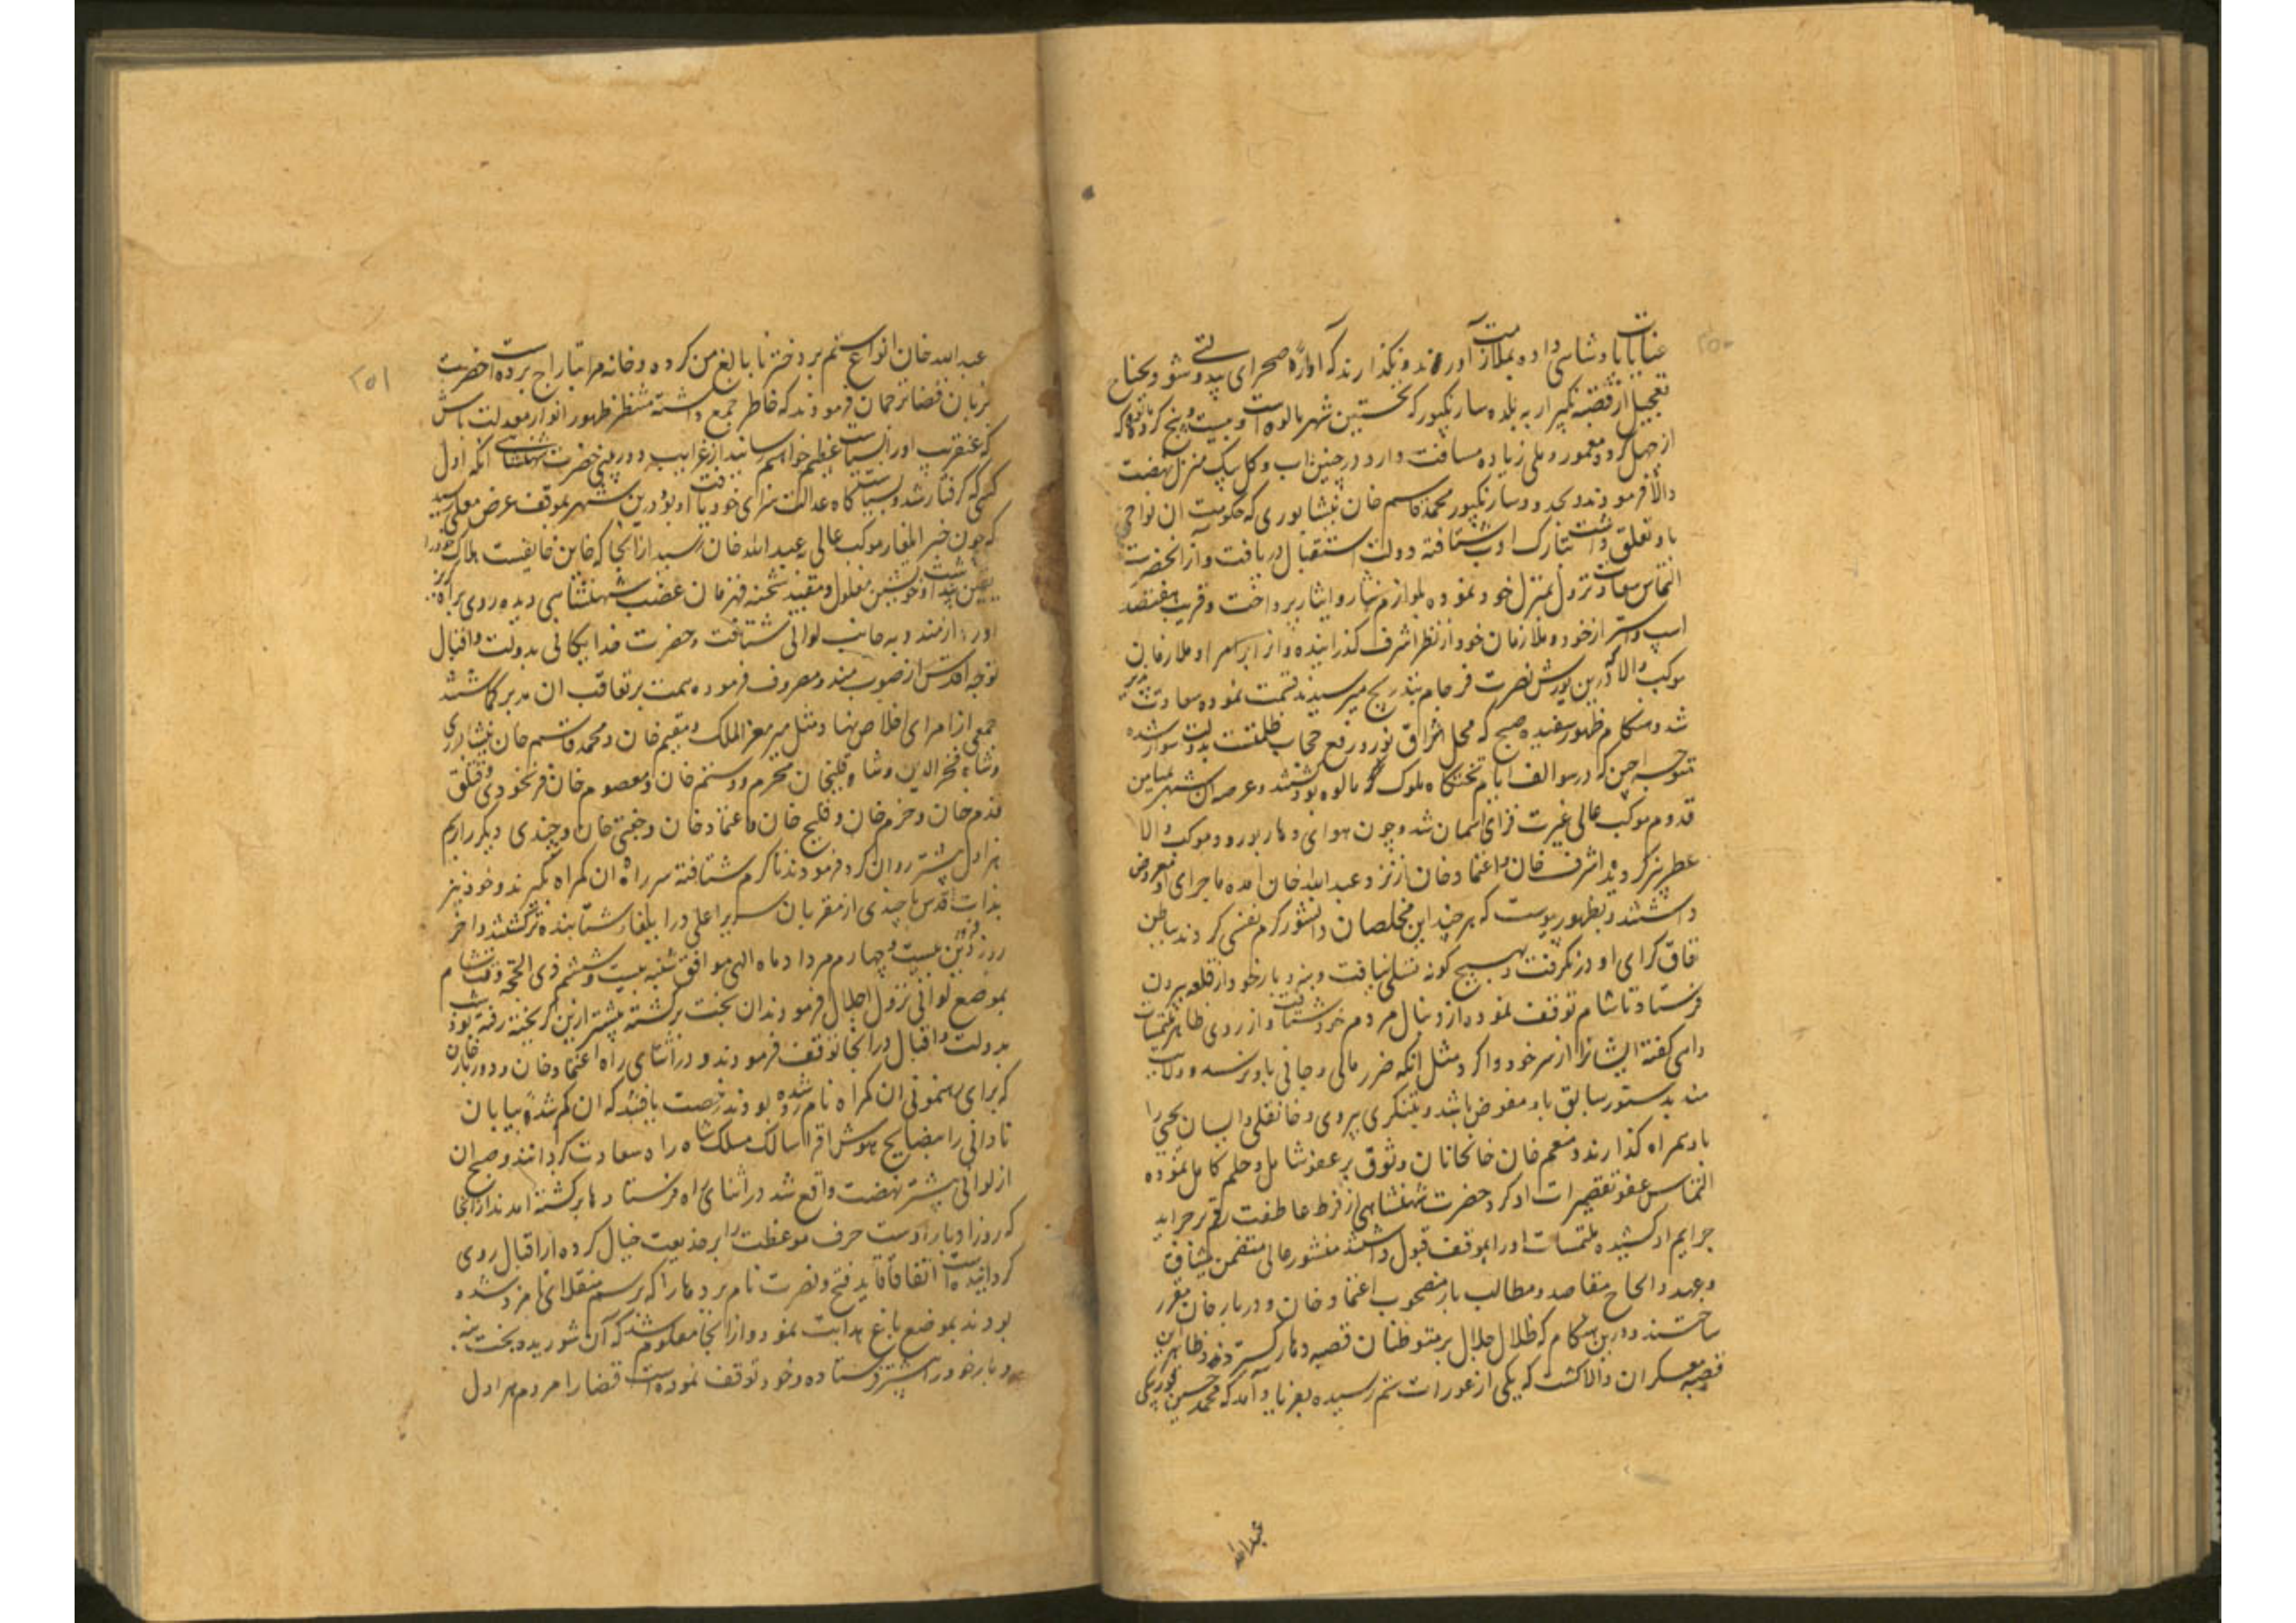 ۲۵۰
عنایات پادشاسی داده بملازمت آورند و نکذارند که آوارهٔ صحرای بیدولتی شود بجناح
تعجیل از قصبه کهیرار به بلده سارنکپور که نخستین شهر مالوه است و بیست و پنج کروه که
از چهل کروه معمور دهلی زیاده مسافت دارد در چنین آب و کل بیک منزل نهضت
والا فرمودند و بحدود سارنکپور محمد قاسم خان نیشابوری که حکومت ان نواحی
باو تعلق داشت بتارک ادب شتافته دولت استقبال دریافت و از انحضرت
التماس سعادت نزول بمنزل خود نموده بلوازم نثار و ایثار پرداخت و قریب هفتصد
اسپ و استر از خود و ملازمان خود از نظر اشرف کذرانیده و از امرا و ملازمان
موکب والا که درین یورش نصرت فرجام بتدریج میرسیدند قسمت نموده سعادت پذیر
شد و هنکام ظهور سفیده صبح که محل اشراق نور و رفع حجاب ظلمتست بدولت سوار شده
متوجه اجین که در سوالف ایام تختکاه ملوک مالوه بود شدند و عرصه آن شهر بمیامن
قدوم موکب عالی غیرت فزای آسمان شد و چون هوای دهار بورود موکب والا
عطربیز کردید اشرف خان و اعتماد خان از نزد عبدالله خان امده ماجرای او معروض
داشتند و بظهور پیوست که هر چند این مخلصان دانشور کرم نفسی کردند بباطن
نفاق کرای او در نکرفت و بهیچ کونه تسلی نیافت و بنه و بار خود از قلعه بیرون
فرستاد تا شام توقف نموده از دنبال مردم خود شتافت و از روی ظاهر ملتمسات
وامی کفته ایشانرا از سر خود وا کرد مثل آنکه ضرر مالی و جانی باو نرسد و ولایت
مندو بدستور سابق باو مفوض باشد و تنکری بیردی و خانقلی و ایسان یحیی را
باو همراه کذارند و منعم خان خانخانان وثوق بر عفو شامل و حلم کامل نموده
التماس عفو تقصیرات او کرد حضرت شهنشاهی از فرط عاطفت رقم بر جراید
جرایم او کشیده ملتمسات او را بموقف قبول داشتند منشور عالی متضمن میثاق
و عهد و انجاح مقاصد و مطالب باز مصحوب اعتماد خان و دربار خان مقرر
ساختند و درین هنکام که ظلال جلال بر متوطنان قصبه دهار کستردند و ظاهر این
قصبه معسکر ان والا کشت که یکی از عورات ستم رسیده بفریاد آمد که محمد حسین
عبدالله
۲۵۱
عبدالله خان انواع ستم بر دختر نابالغ من کرده و خانه مرا بتاراج برده است حضرت
بزبان قضا ترجمان فرمودند که خاطر جمع داشته منتظر ظهور انوار معدلت باش
که عنقریب او را بسیاست عظیم خواهم رسانید از غرایب دوربینی حضرت شهنشاهی آنکه اول
کسی که کرفتار شد و بسیاستکاه عدالت سزای خود یافت او بود درین شهر بموقف عرض معلی رسید
که چون خبر ایلغار موکب عالی بعبدالله خان رسید از انجا که خاین خایفست هلاک خود را
یقین پنداشت و خویشتن مغلول و مقید شحنه قهرمان غضب شهنشاهی دیده روی براه کریز
اورد از مندو بجانب لوانی شتافت و حضرت خدایکانی بدولت و اقبال
توجه اقدس از صوب مندو مصروف فرموده همت بر تعاقب ان مدبر کماشتند
جمعی از امرای اخلاص نهاد مثل میر معز الملک و مقیم خان و محمد قاسم خان نیشابوری
و شاه فخرالدین و شاه قلیخان محرم و رستم خان و معصوم خان فرنخودی و قتلق
قدم خان و خرم خان و قلیج خان و اعتماد خان و جغتی خان و چندی دیکر را برسم
هراول پیشتر روان کرد فرمودند تا کرم شتافته سر راه ان کمراه بکیرند و خود نیز
بذات اقدس با چندی از مقربان سریر اعلی در ایلغار شتابنده تر کشتند و آخر
روز دین بیست و چهارم مرداد ماه الهی موافق شنبه بیست و ششم ذی الحجه وقت شام
بموضع لوانی نزول اجلال فرمودند ان بخت برکشته پیشتر ازین کریخته رفته بود شب
بدولت و اقبال در انجا توقف فرمودند و در اثنای راه اعتماد خان و دربار خان
که برای رهنمونی ان کمراه نامزد شده بودند رخصت یافتند که ان کم شده بیابان
نادانی را بنصایح هوش افزا سالک مسلک شاه راه سعادت کردانند و صبح ان
از لوانی پیشتر نهضت واقع شد در اثنای راه فرستادها برکشته امدند از انجا
که روز ادبار اوست حرف موعظت را بر خدیعت خیال کرده از اقبال روی
کردانیده است اتفاقا قاید فتح و نصرت نام بردها را که برسم منقلای نامزد شده
بودند بموضع باغ هدایت نمود و از انجا معلوم شد که آن شوریده بخت بنه
و بار خود را پیشتر فرستاده و خود توقف نموده است قضا را مردم هراول